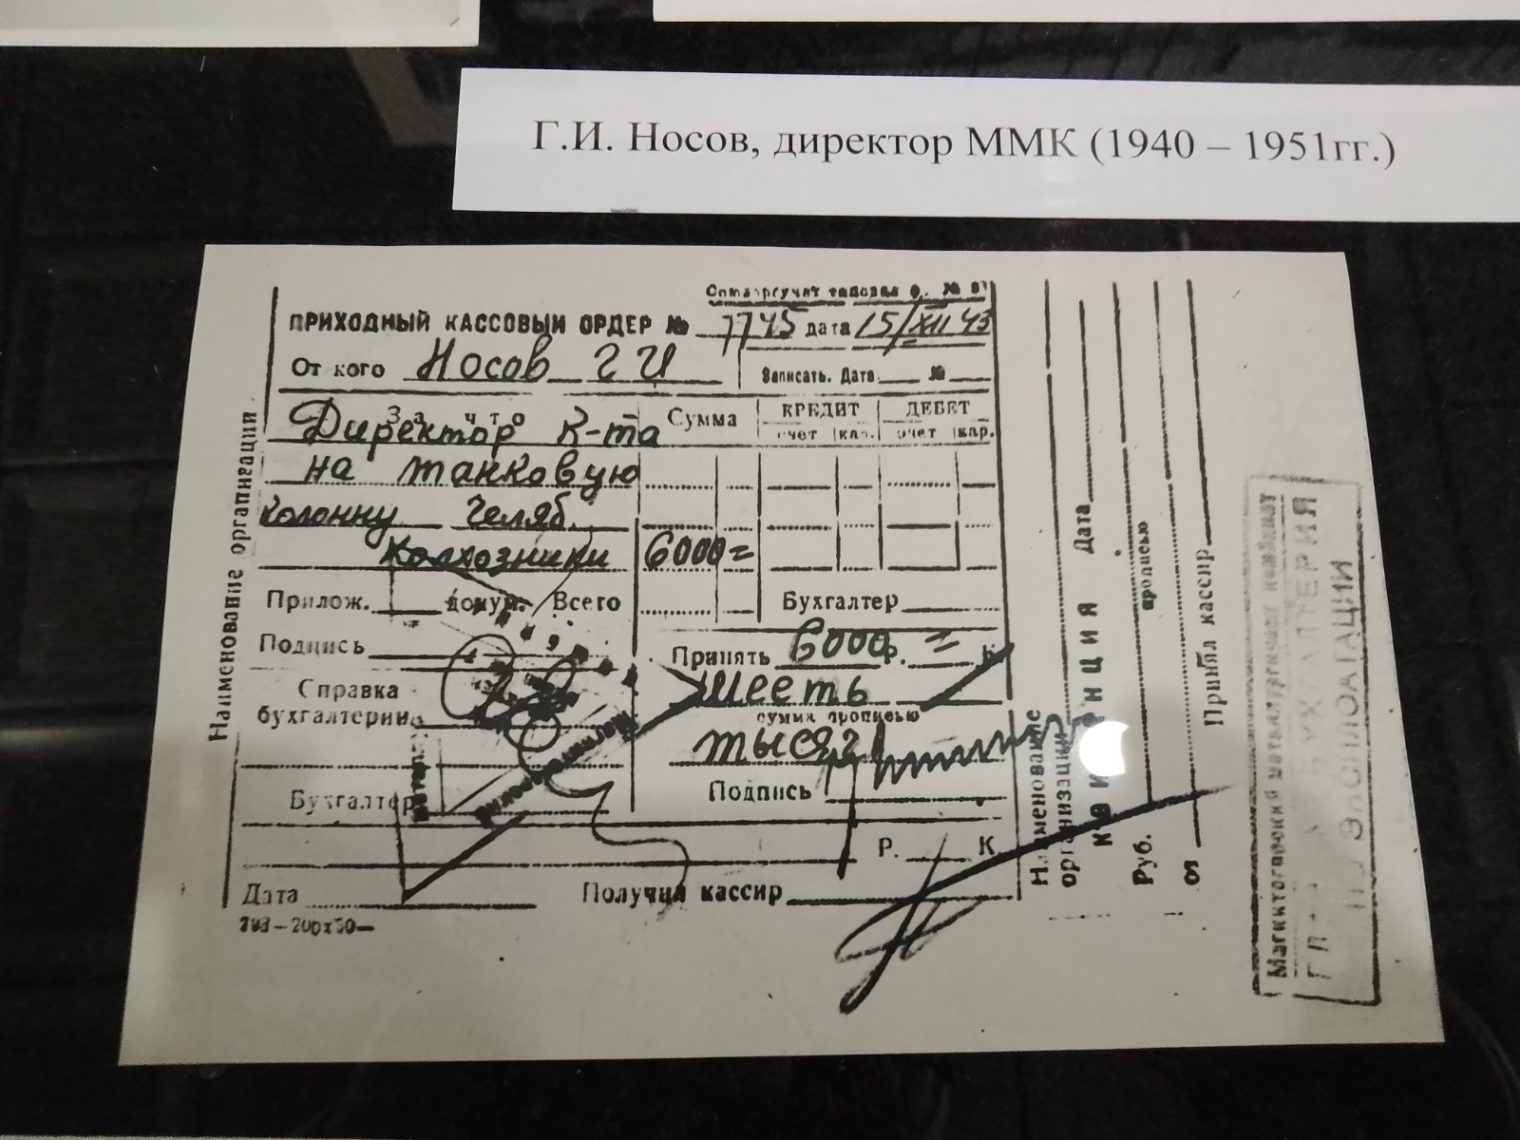 Г.И. Носов, директор ММК (1940 – 1951гг.)
ПРИХОДНЫЙ КАССОВЫЙ ОРДЕР № 7745 дата 15/XII 43
От кого Носов Г И
Записать. Дата №
За что
Сумма
КРЕДИТ
ДЕБЕТ
счет
кар.
счет
кар.
Директор к-та
на танковую
колонну Челяб.
колхозники 6000=
Прилож. докум. Всего
Бухгалтер
Подпись
Принять 6000р. = к
Справка
бухгалтерии
Шесть
сумма прописью
тысяч
Бухгалтер
Подпись
Р. К
Дата
Получил кассир
Наименование организации
Наименование
организации
КВИТАНЦИЯ Дата
Руб.
прописью
от
Принял кассир
Магнитогорский металлургический комбинат
ГЛ БУХГАЛТЕРИЯ
ПО ЭКСПЛОАТАЦИИ